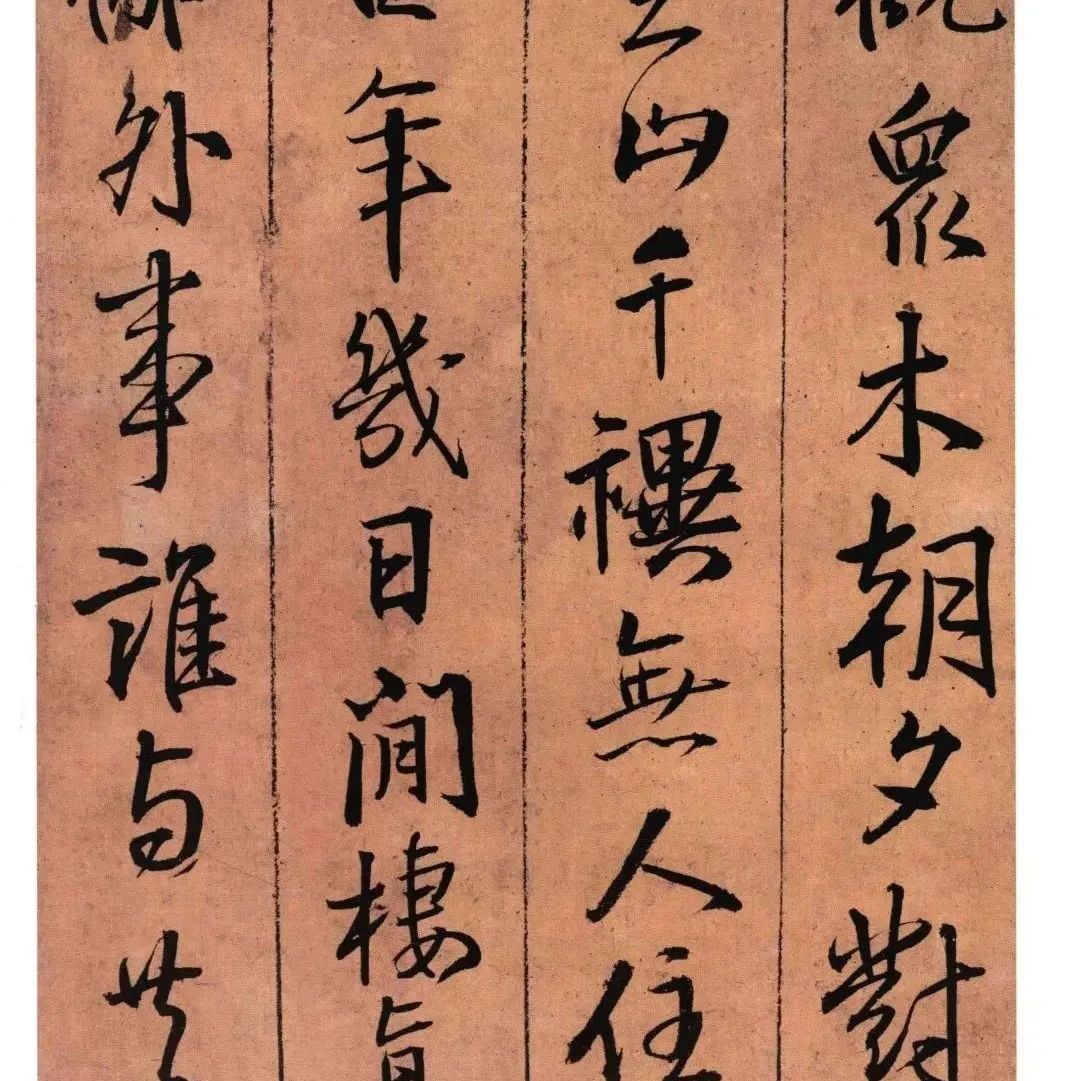 衆木朝夕對
山千禩無人住
年幾日閒棲
外事誰与共